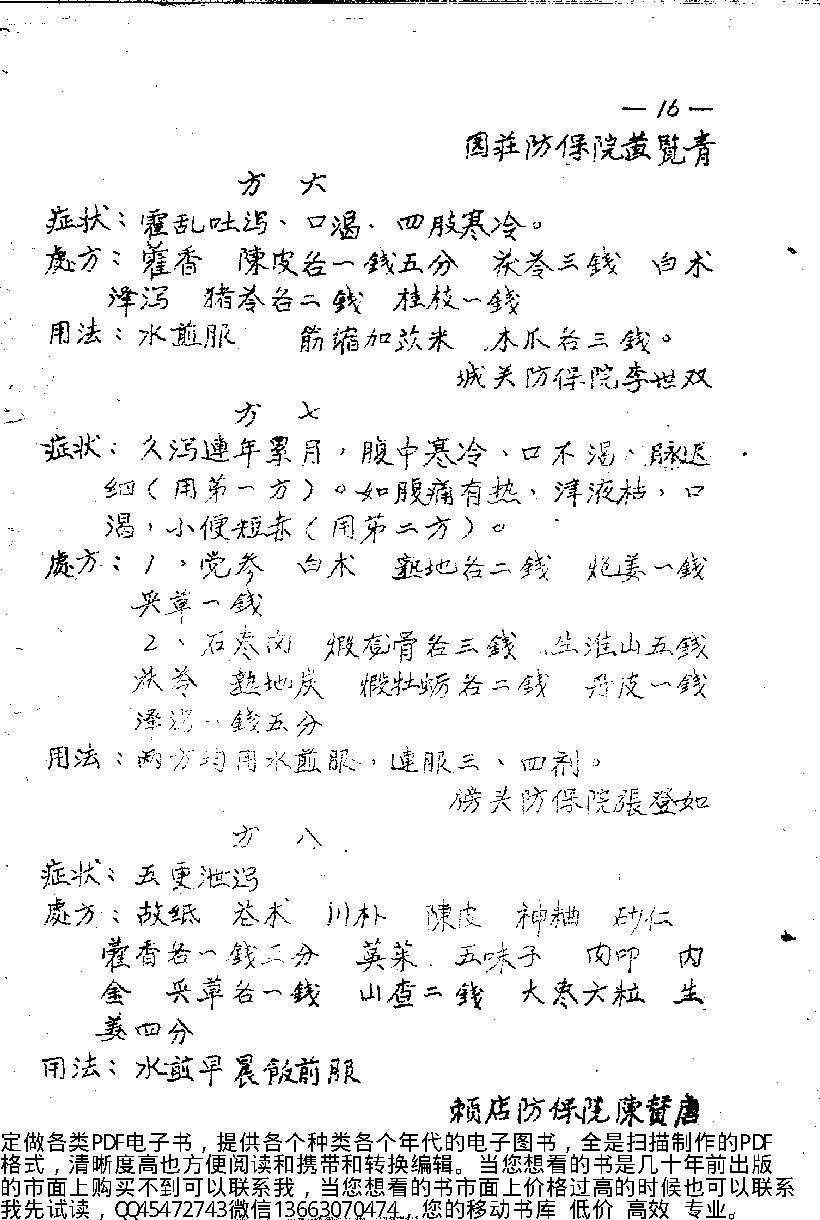 —16—
园莊防保院黄覧青
方 六
症状：霍乱吐泻、口渴、四肢寒冷。
處方：藿香 陳皮各一錢五分 茯苓三錢 白术
泽泻 猪苓各二錢 桂枝一錢
用法：水煎服 筋缩加苡米 木瓜各三錢。
城关防保院李世双
方 七
症状：久泻連年累月，腹中寒冷、口不渴、脉迟
细（用第一方）。如腹痛有热、津液枯，口
渴，小便短赤（用第二方）。
處方：1，党参 白术 熟地各二錢 炮姜一錢
炙草一錢
2、石枣肉 煅龙骨各三錢 生淮山五錢
茯苓 熟地炭 煅牡蛎各二錢 丹皮一錢
泽泻一錢五分
用法：两方均用水煎服，連服三、四剂。
榜头防保院張登如
方 八
症状：五更泄泻
處方：故纸 苍术 川朴 陳皮 神粬 砂仁
藿香各一錢二分 萸茱 五味子 肉叩 内
金 炙草各一錢 山查二錢 大枣六粒 生
姜四分
用法：水煎早晨飯前服
賴店防保院陳賛唐
定做各类PDF电子书，提供各个种类各个年代的电子图书，全是扫描制作的PDF
格式，清晰度高也方便阅读和携带和转换编辑。当您想看的书是几十年前出版
的市面上购买不到可以联系我，当您想看的书市面上价格过高的时候也可以联系
我先试读，QQ45472743微信13663070474，您的移动书库 低价 高效 专业。